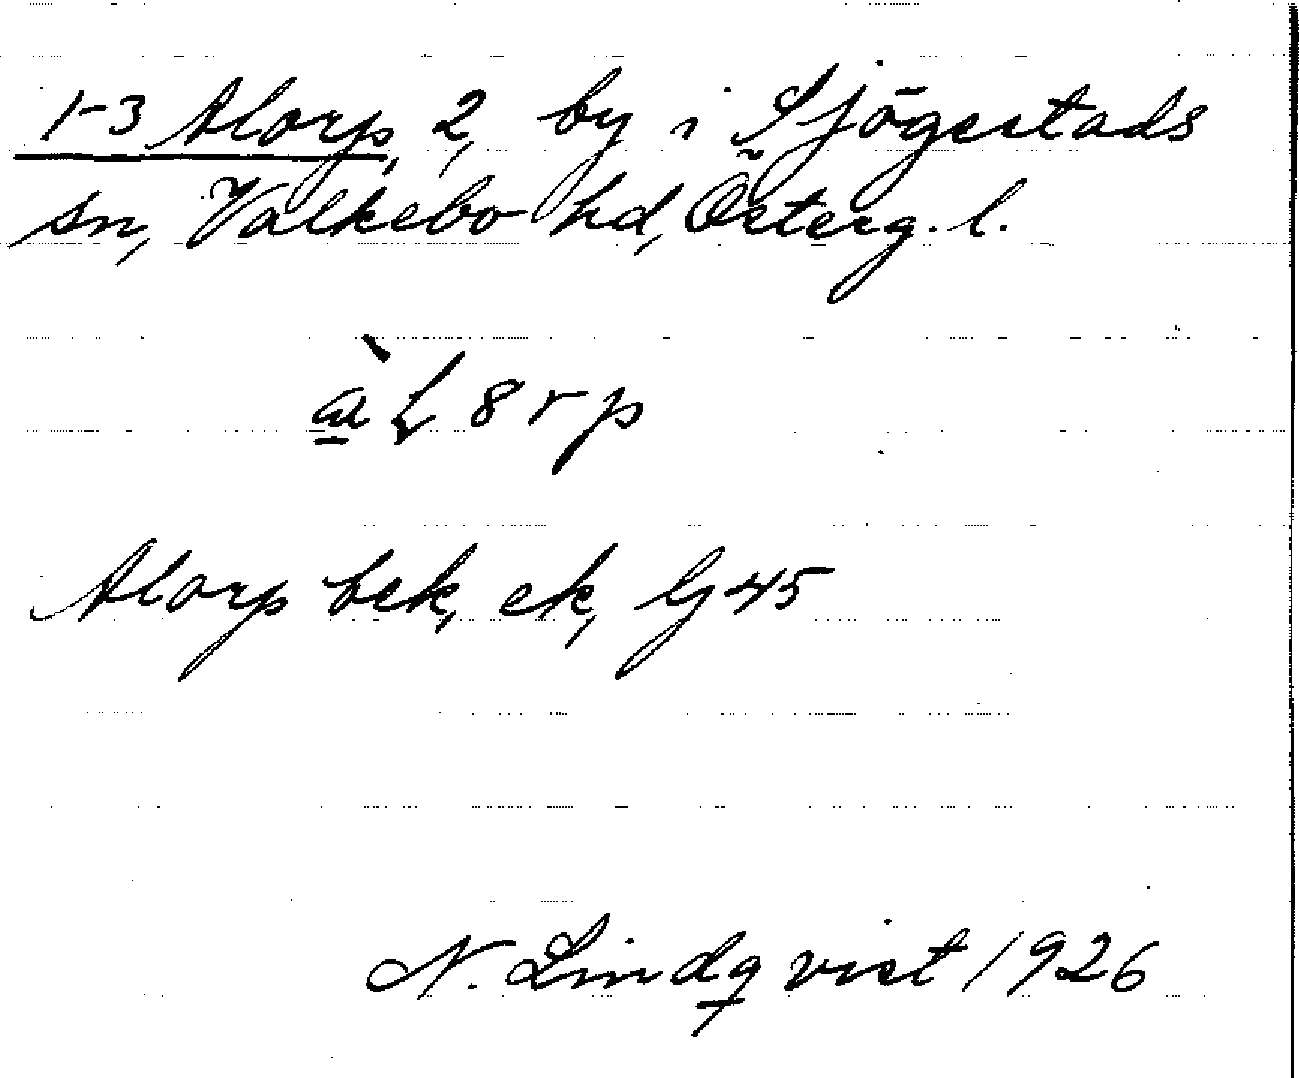 1-3 Alorp, 2, by i Sjögestads
sn, Valkebo hd, Österg. l.
8 r p
Alorp bek, ek, G 45
N. Lindqvist 1926